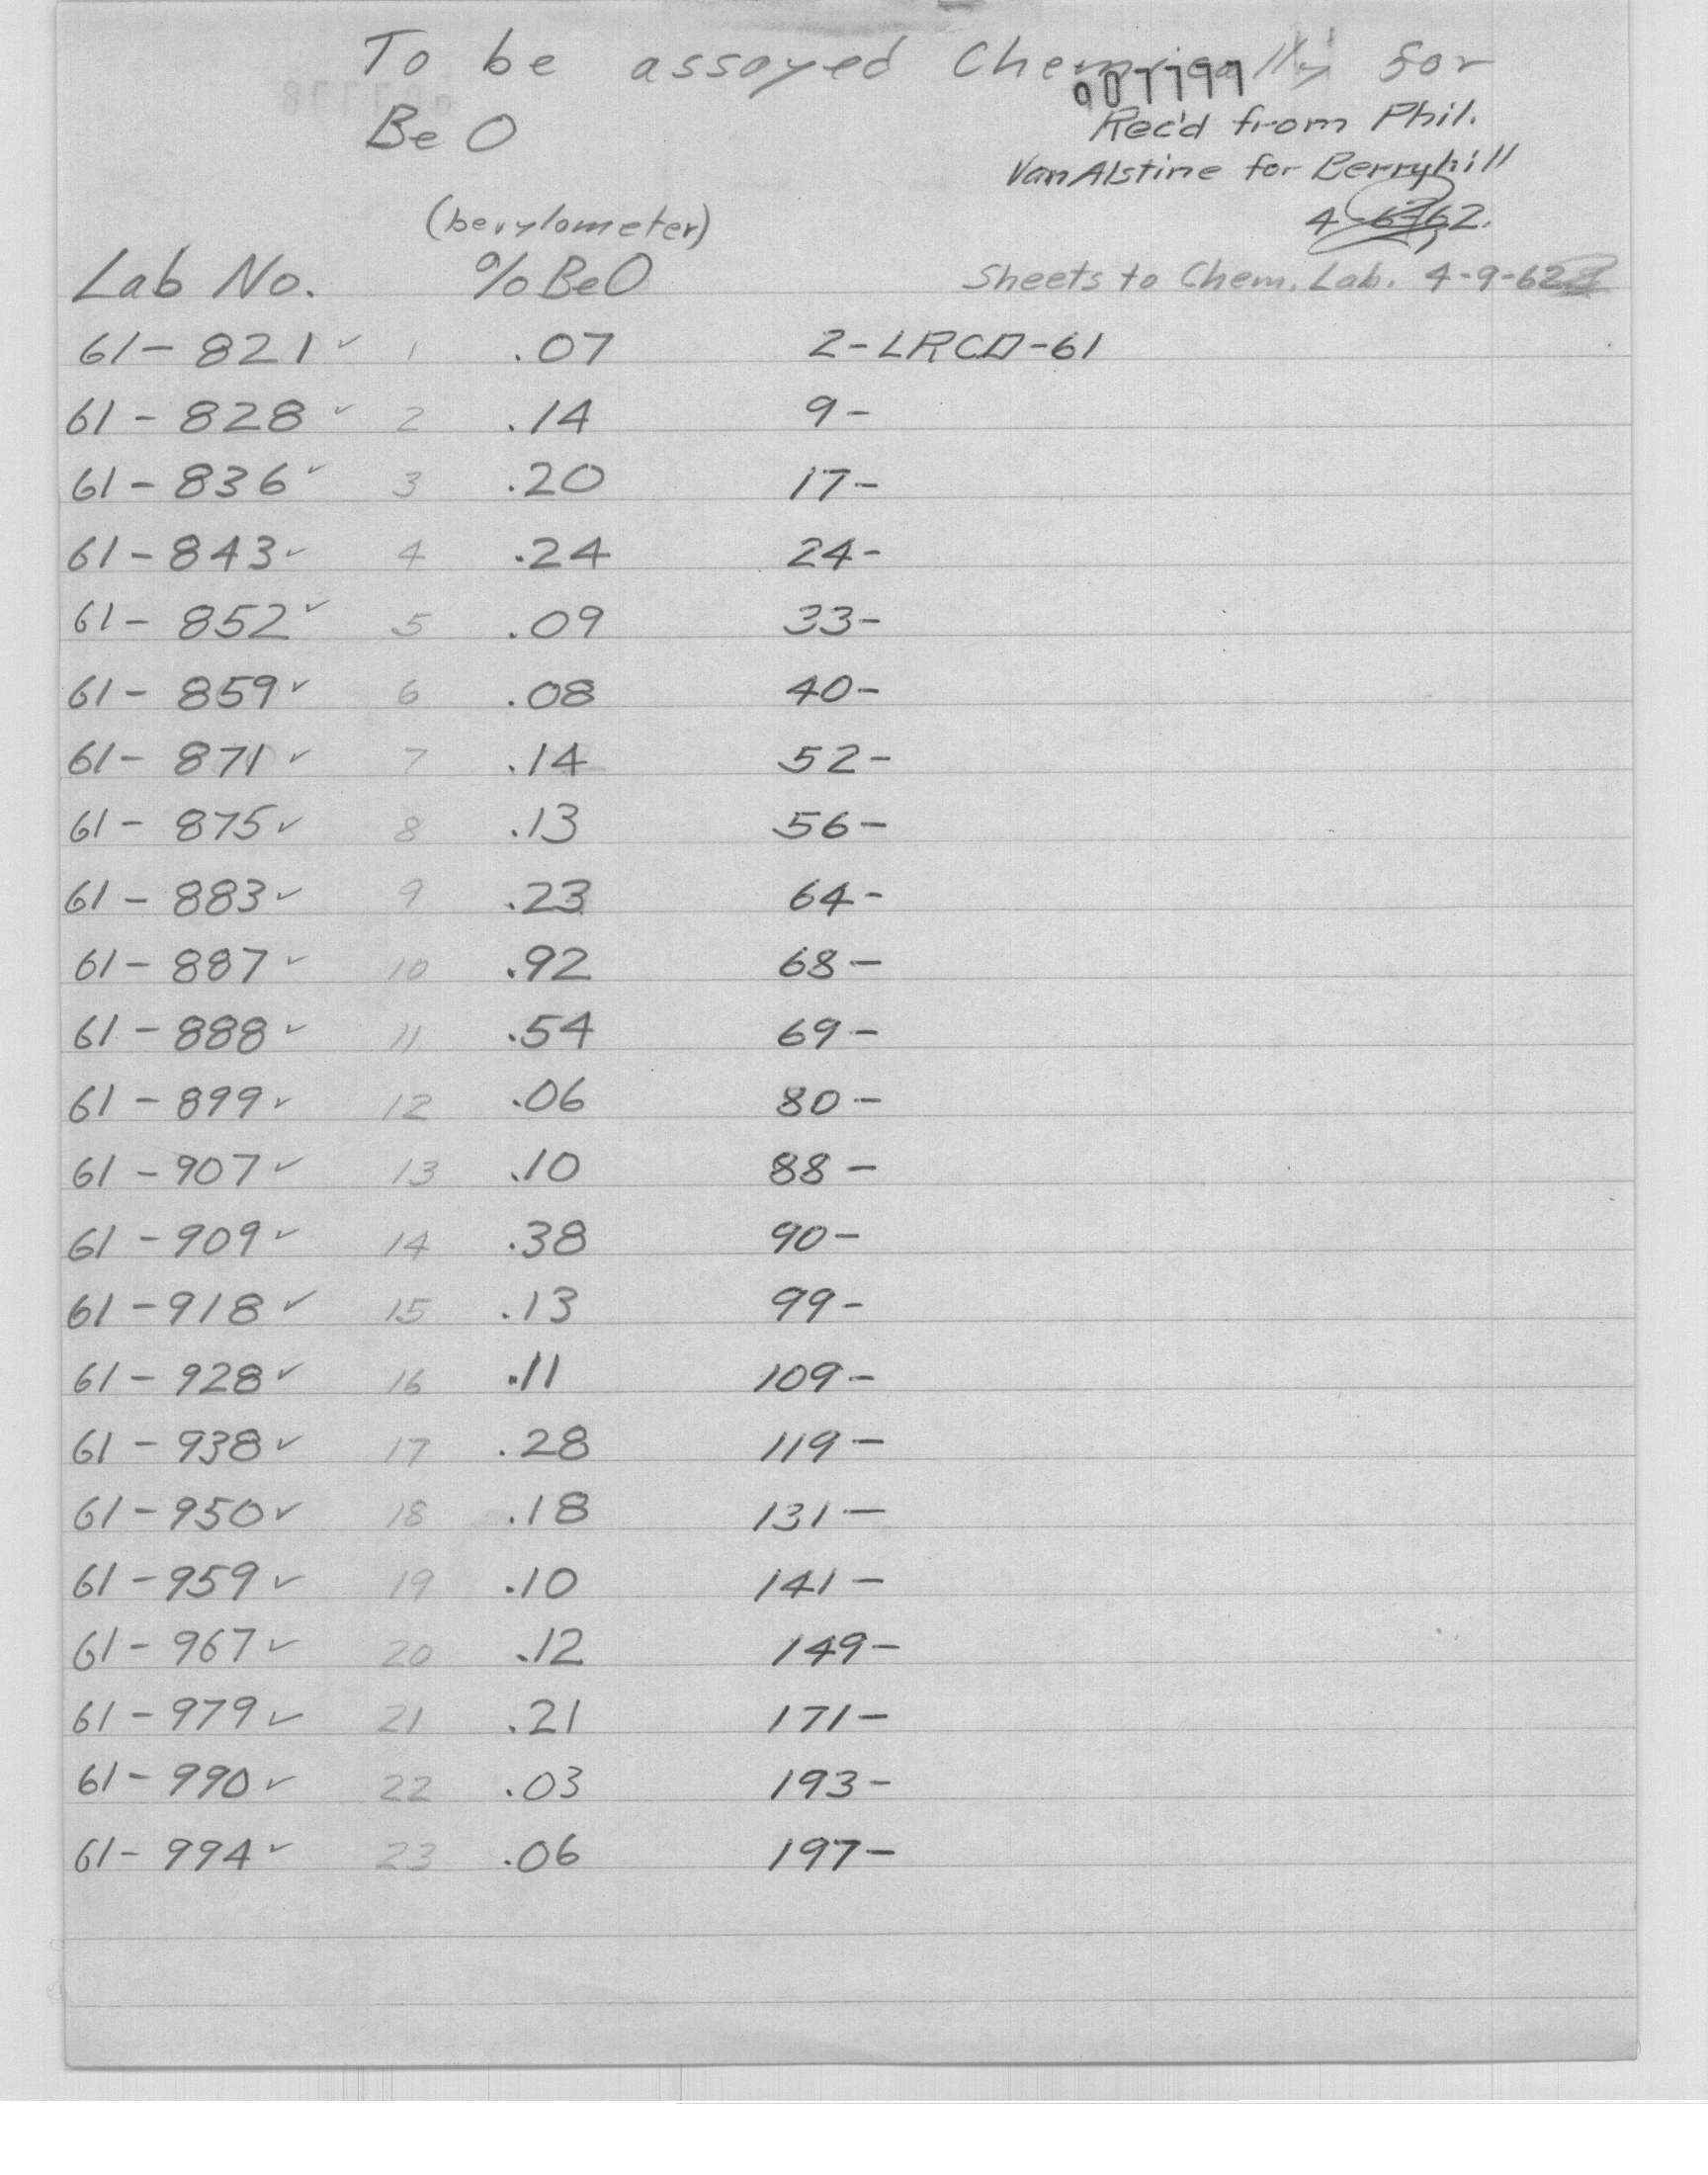 To be assayed Chemically for
907799
Be O
Rec'd from Phil.
Van Alstine for Berryhill
(berylometer)
4-6-62.
Lab No. % BeO
Sheets to Chem. Lab. 4-9-62
61-821 ✓ 1 .07 2-LRCD-61
61-828 ✓ 2 .14 9-
61-836 ✓ 3 .20 17-
61-843 ✓ 4 .24 24-
61-852 ✓ 5 .09 33-
61-859 ✓ 6 .08 40-
61-871 ✓ 7 .14 52-
61-875 ✓ 8 .13 56-
61-883 ✓ 9 .23 64-
61-887 ✓ 10 .92 68-
61-888 ✓ 11 .54 69-
61-899 ✓ 12 .06 80-
61-907 ✓ 13 .10 88-
61-909 ✓ 14 .38 90-
61-918 ✓ 15 .13 99-
61-928 ✓ 16 .11 109-
61-938 ✓ 17 .28 119-
61-950 ✓ 18 .18 131-
61-959 ✓ 19 .10 141-
61-967 ✓ 20 .12 149-
61-979 ✓ 21 .21 171-
61-990 ✓ 22 .03 193-
61-994 ✓ 23 .06 197-